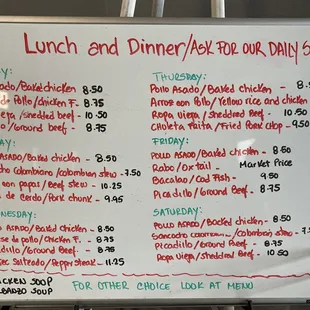 Lunch and Dinner/ASK FOR OUR DAILY S
AY:
Asado/Baked chicken 8.50
de Pollo/chicken F. - 8.75
Vieja/shredded beef - 10.50
/ground beef - 8.75
AY:
Asado/Baked chicken - 8.50
cho Colombiano/colombian stew - 7.50
con papas/Beef stew - 10.25
de cerdo/Pork chunk - 9.95
NESDAY:
Asado/Baked chicken - 8.50
se de pollo/chicken F. - 8.75
dillo/Ground Beef - 8.75
ec Salteado/Pepper steak - 11.25
CHICKEN SOUP
SOUP
THURSDAY:
Pollo Asado/Baked chicken - 8
Arroz con Pollo/Yellow rice and chicken
Ropa Vieja/Shredded Beef - 10
Chuleta Frita/Fried Pork chop - 9.50
FRIDAY:
Pollo Asado/Baked chicken - 8.50
Rabo/Oxtail - Market Price
Bacalao/Cod Fish - 9.50
Picadillo/Ground Beef - 8.75
SATURDAY:
Pollo Asado/Backed chicken - 8.50
Sancocho Colombiano/Colombian stew - 7.5
Picadillo/Ground Beef - 8.75
Ropa Vieja/Shredded Beef - 10.50
FOR OTHER CHOICE LOOK AT MENU